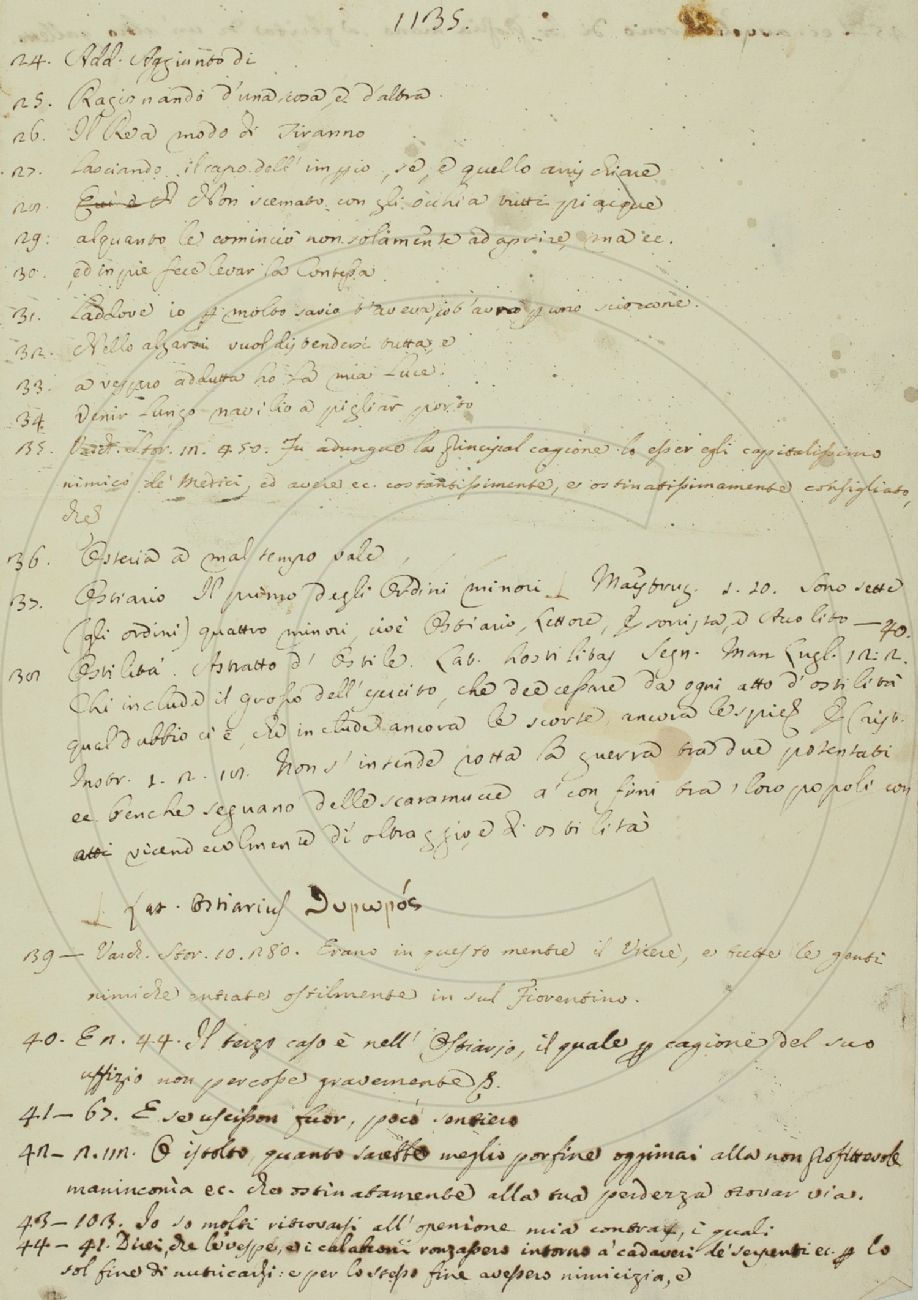 1135.
24. Add. Aggiunto di
25. Ragionando d'una cosa, e d'altra
26. Il Re a modo di Tiranno
27. Lasciando il capo dell' impio, se, e quello chiare
28. Non scemato con gli occhi a tutti piacque
29. alquanto le cominciò non solamente ad aprire, ma ec.
30. ed in piè fece levar la Contessa
31. Laddove io p molto savio t'aveva, io t'avrò p uno scioccone.
32. Nello alzarsi vuol distendersi tutta, e
33. a vespro addutta ho la mia Luce.
34 Venir lungo navilio a pigliar porto
35. Varch. Stor. 12. 450. Fu adunque la principal cagione lo esser egli capitalissimo
nimico de' Medici, ed avere ec. costantissimente, e ostinatissimamente consigliato,
che
36. Osteria a mal tempo vale
37. Ostiario Il primo degli Ordini minori Maestruz. 1. 20. Sono sette
(gli ordini) quattro minori, cioè Ostiario, Lettore, e Accolito — 40.
38 Ostilità. Astratto d' Ostile. Lat. hostilitas Segn. Mann. Lugl. 12. 2.
Chi include il grosso dell' esercito, che dee cessare da ogni atto d'ostilità
qual dubbio ci è, che include ancora le scorte, ancora le spie
Instr. 1. 2. 12. Non s' intende rotta la guerra tra due potentati
ec. benche seguano delle scaramucce a' confini tra loro popoli con
atti vicendevolmente di oltraggio, e di ostilità
Lat. Ostiarius Θυρωρός
39 — Varch. Stor. 10. 280. Erano in questo mentre il Vicere, e tutte le genti
nimiche entrate ostilmente in sul Fiorentino.
40. E 2. 44. Il terzo caso è nell' Ostiario, il quale p cagione del suo
uffizio non percosse gravemente
41 — 67. E se uscisson fuor, poco sentiero
42 — 2. 12. O istolto, quanto sarebbe meglio por fine oggimai alla non profittevole
maninconia ec. che ostinatamente alla tua perdezza trovar via.
43 — 103. Io so molti ritrovarsi all' openione mia contra, i quali
44 — 41. Direi, che le vespe, e i calabroni ronzassero intorno a' cadaveri de' serpenti ec. p lo
sol fine di nutricarsi: e per lo stesso fine avessero nimicizia, e